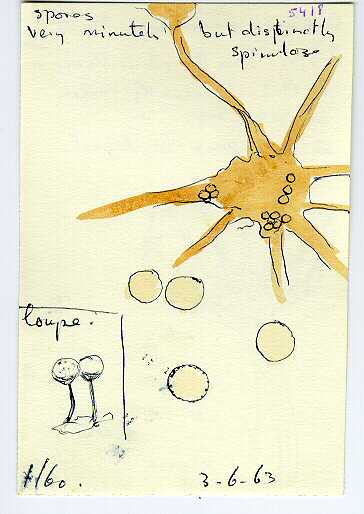 5418
spores
very minutely but distinctly
spinulose
loupe.
1/60.
3-6-63